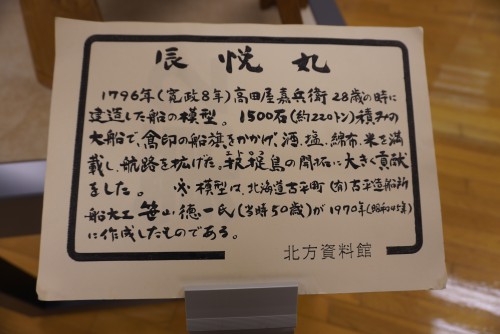 辰悦丸
1796年(寛政8年)高田屋嘉兵衛28歳の時に
建造した船の模型。1500石(約220トン)積みの
大船で、高印の船旗をかかげ、酒、塩、綿布、米を満
載し、航路を拡げた。択捉島の開拓に大きく貢献
をしました。 模型は、北海道古平町(有)古平造船所
船大工笹山徳一氏(当時50歳)が1970年(昭和45年)
に作成したものである。
北方資料館